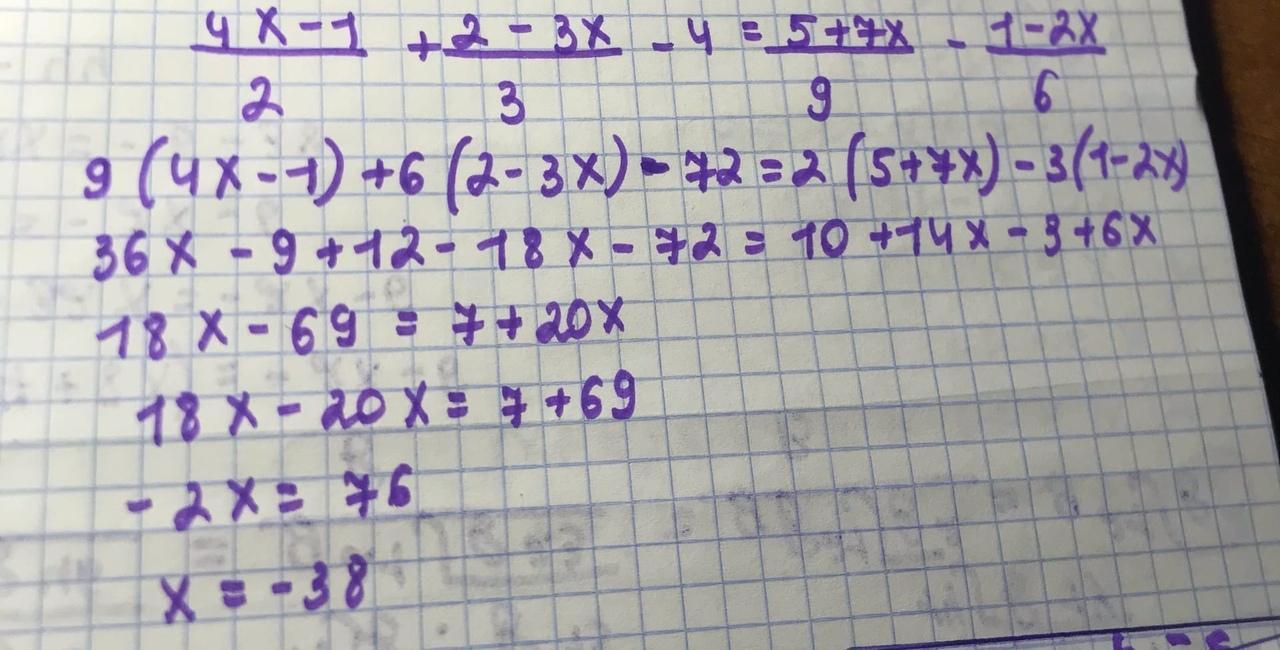 4x-1/2 + 2-3x/3 - 4 = 5+7x/9 - 1-2x/6
9(4x-1)+6(2-3x)-72=2(5+7x)-3(1-2x)
36x-9+12-18x-72=10+14x-3+6x
18x-69=7+20x
18x-20x=7+69
-2x=76
x=-38